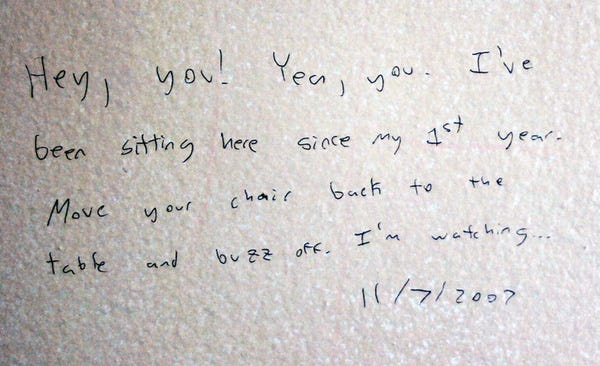 Hey, you! Yea, you. I've
been sitting here since my 1st year.
Move your chair back to the
table and buzz off. I'm watching...
11/7/2007